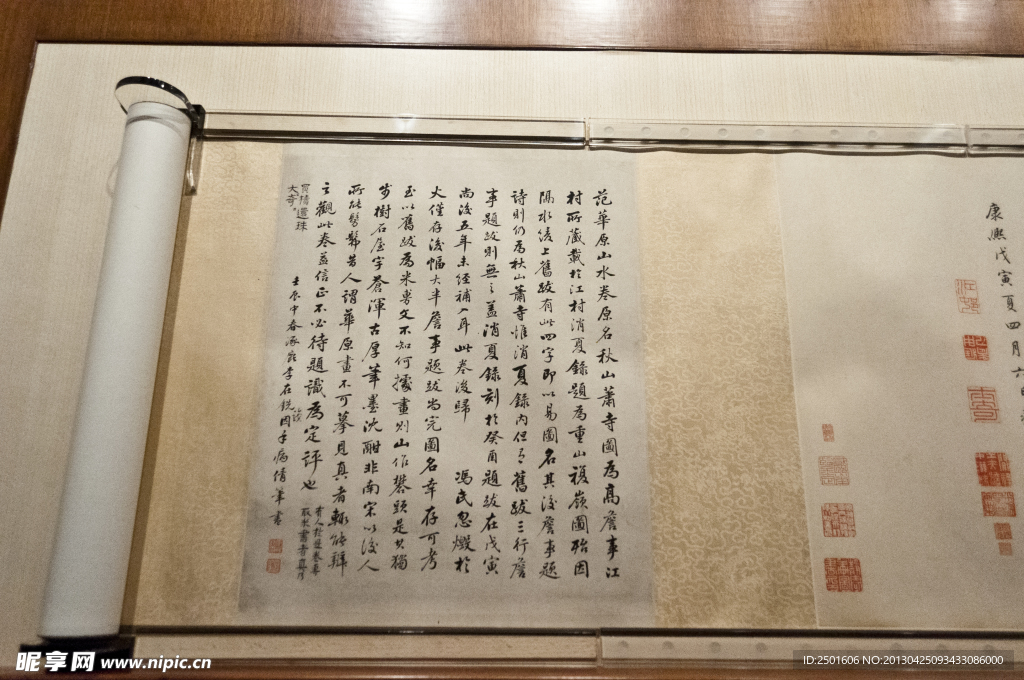 康熙戊寅夏四月六
范華原山水卷原名秋山蕭寺圖為高詹事江
村所藏載於江村消夏錄題為重山複嶺圖殆因
隔水綾上舊跋有此四字即以易圖名其後詹事題
詩則仍為秋山蕭寺惟消夏錄內但言舊跋三行詹
事題跋則無之蓋消夏錄刻於癸酉題跋在戊寅
尚後五年未經補入耳此卷後歸 馮氏忽燬於
火僅存後幅大半詹事題跋尚完圖名幸存可考
至以舊跋為米書文不知何據畫則山作礬頭是其獨
步樹石屋宇蒼渾古厚筆墨沈酣非南宋以後人
所能髣髴昔人謂華原畫不可摹見真者輒能辨
之觀此卷益信正不必待題識為定評也
壬辰中春涿鹿李在銑 因手病倩筆書
昵享网 www.nipic.cn
ID:2501606 NO:20130425093433086000